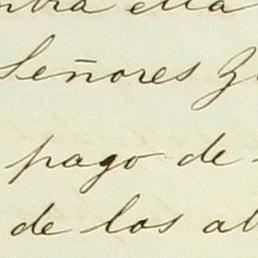 ella
Señores
pago de
de los